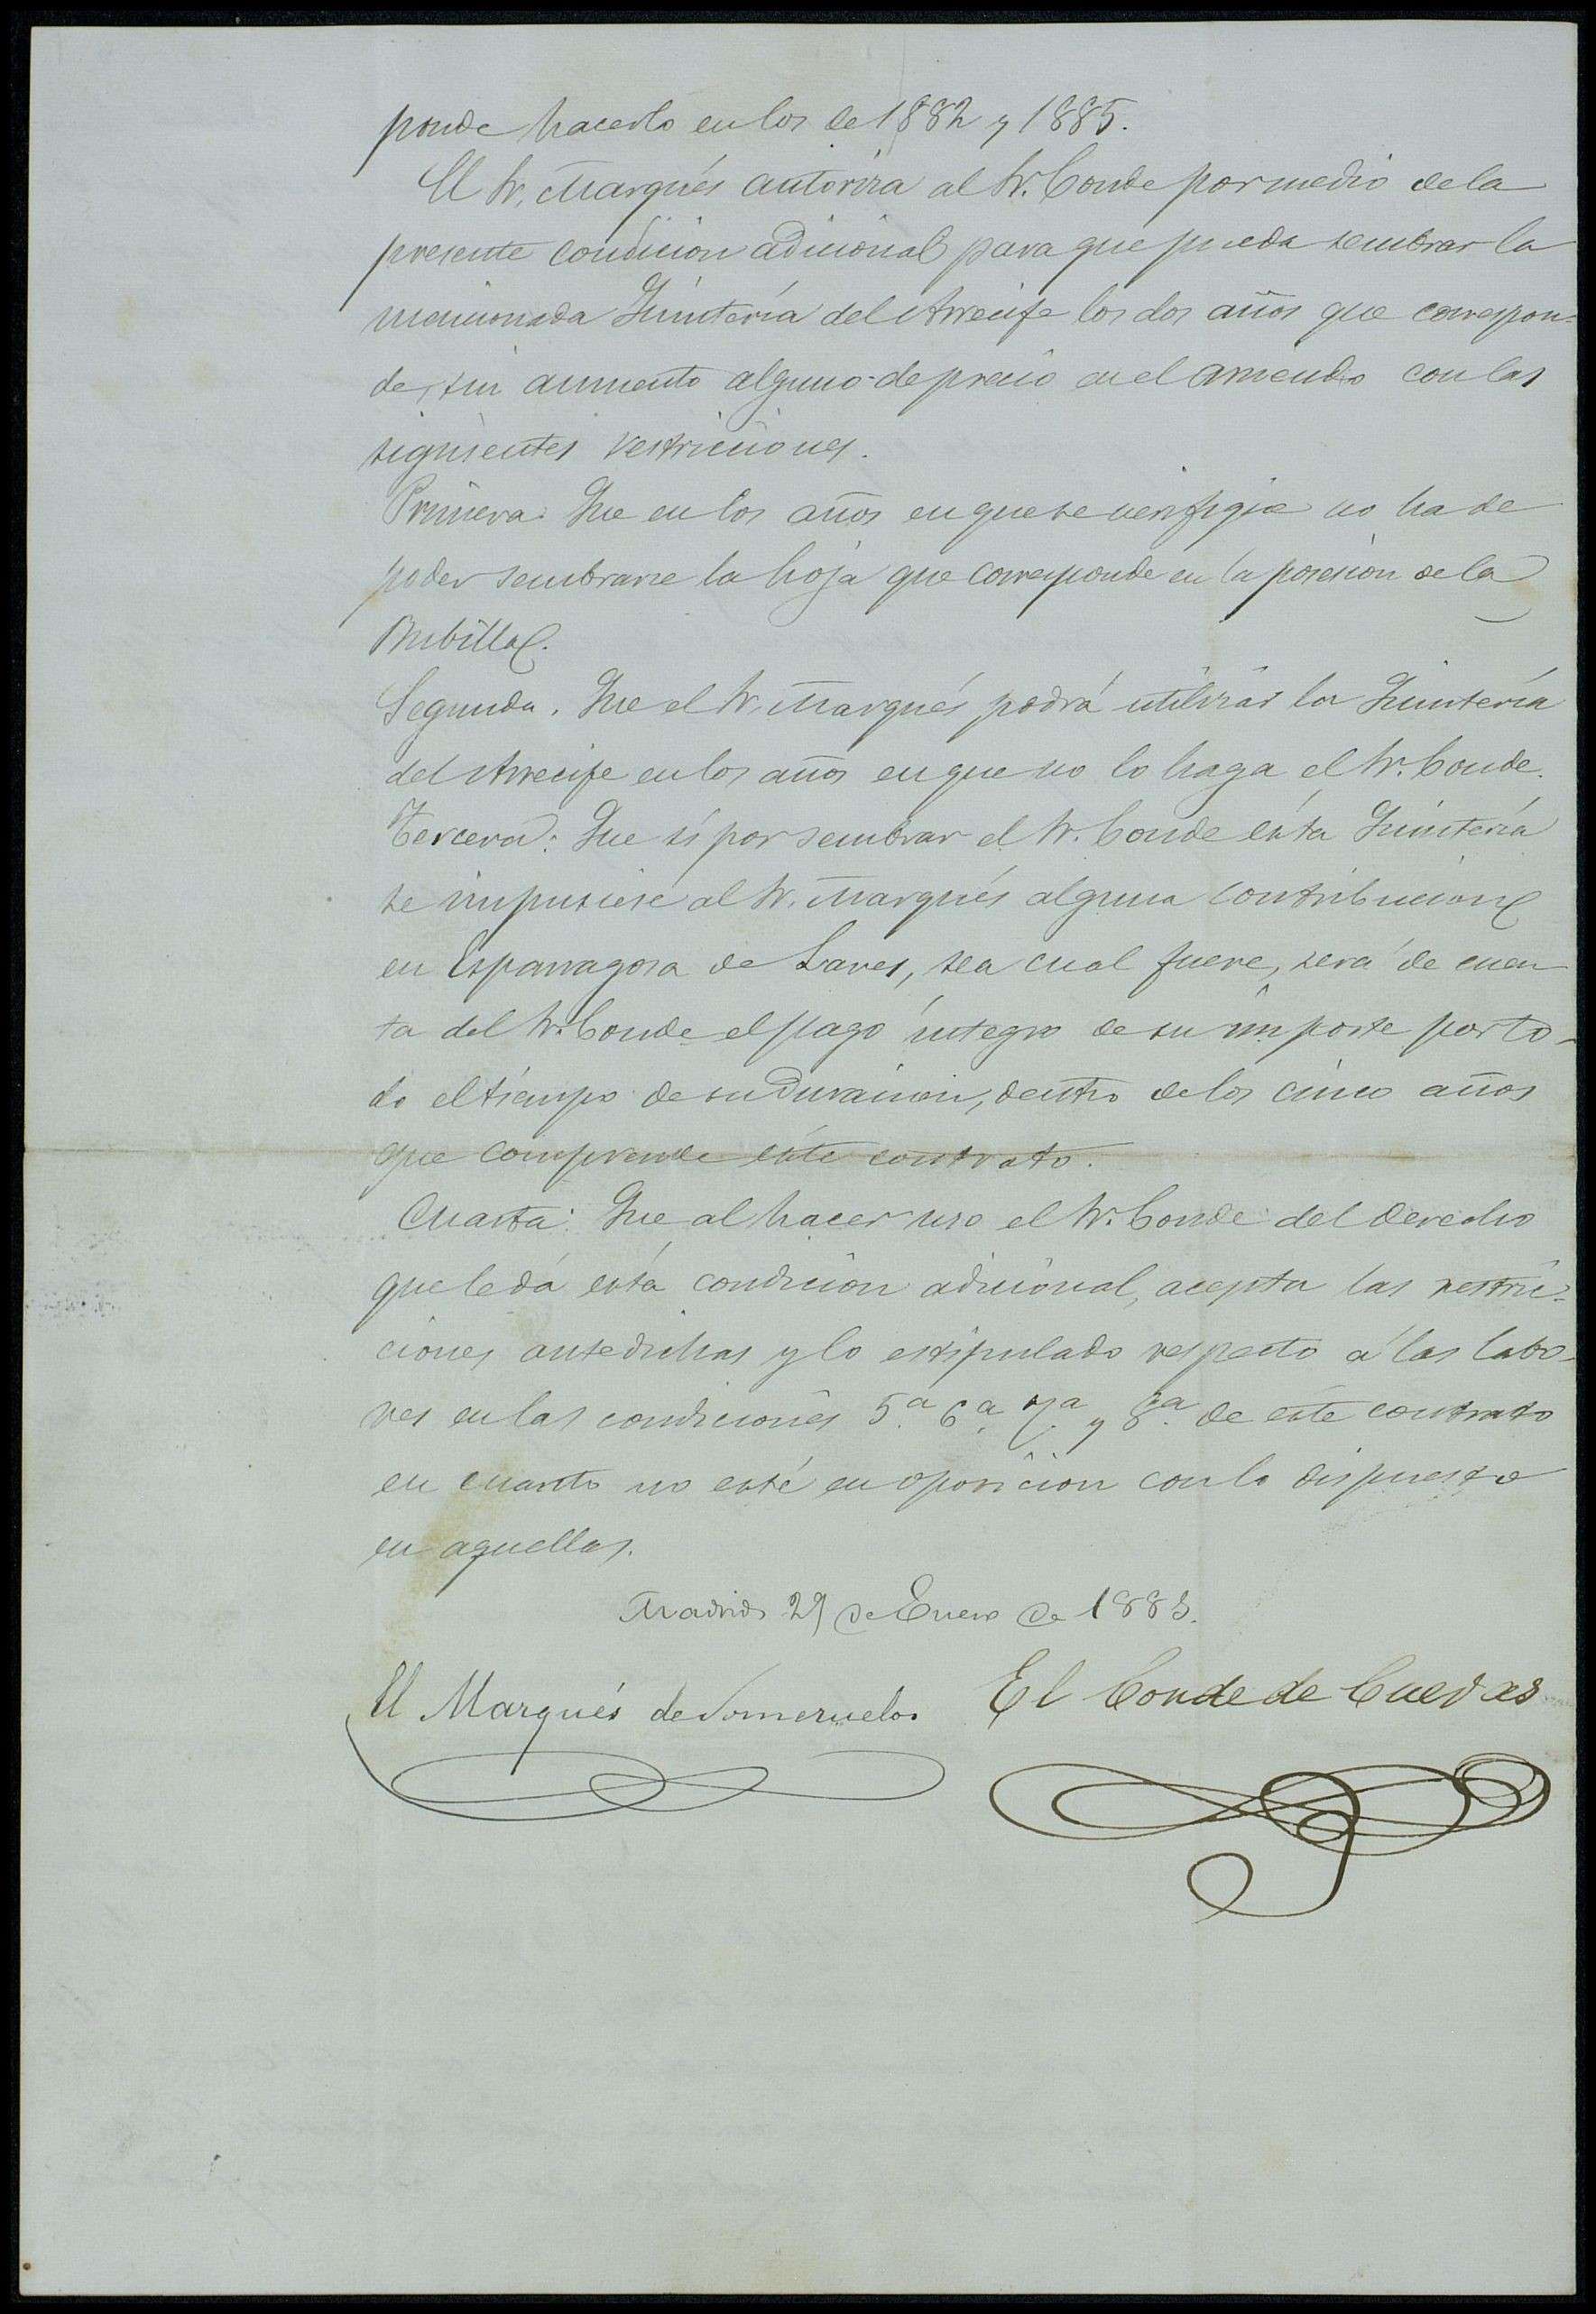 ponde hacerlo en los de 1882 y 1885.
El Sr. Marqués autoriza al Sr. Conde por medio de la
presente condicion adicional para que pueda sembrar la
mencionada Quintería del Arrecife los dos años que correspon-
de, sin aumento alguno de precio en el arriendo con las
siguientes restricciones.
Primera. Que en los años en que se verifique no ha de
poder sembrarse la hoja que corresponde en la posesion de la
Segunda. Que el Sr. Marqués podrá utilizar la Quintería
del Arrecife en los años en que no lo haga el Sr. Conde.
Tercera: Que si por sembrar el Sr. Conde ésta Quintería
se impusiese al Sr. Marqués alguna contribucion
en Esparragosa de Lares, sea cual fuere, será de cuen
ta del Sr. Conde el pago íntegro de su importe por to-
do el tiempo de su duracion, dentro de los cinco años
que comprende éste contrato.
Cuarta: Que al hacer uso el Sr. Conde del derecho
que le dá ésta condicion adicional, acepta las restric-
ciones antedichas y lo estipulado respecto á las labo-
res en las condiciones 5.ª 6.ª 7.ª y 8.ª de éste contrato
en cuanto no esté en oposicion con lo dispuesto
en aquellas.
Madrid 29 de Enero de 1883.
El Marqués de Someruelos El Conde de Cuevas